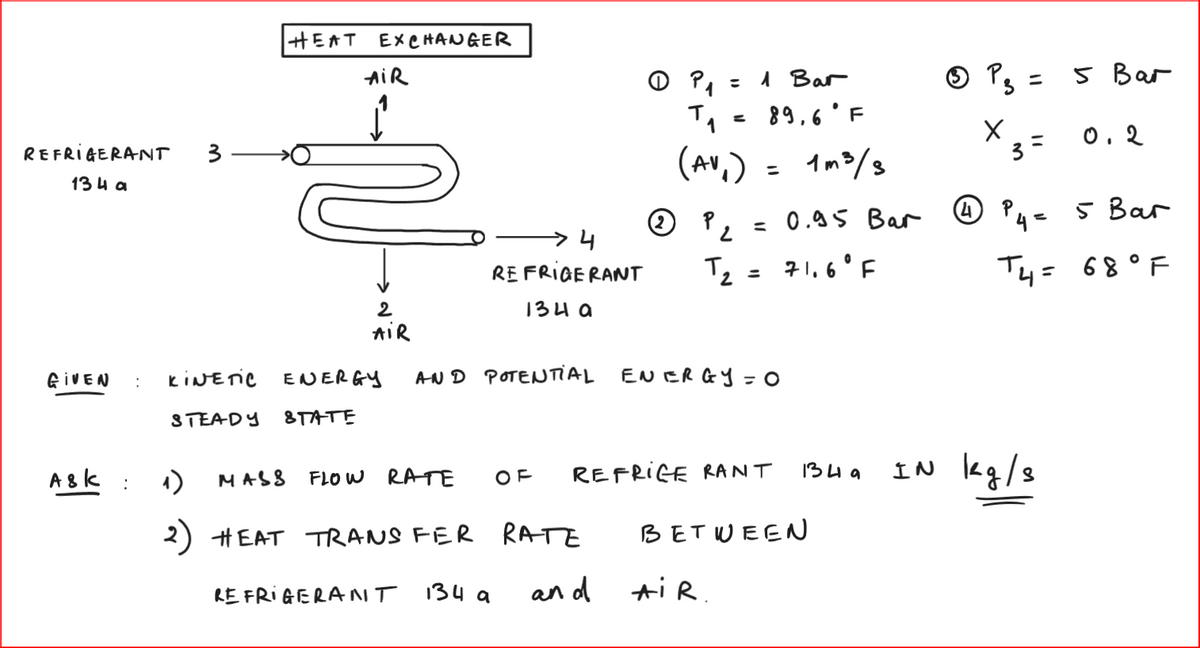 HEAT EXCHANGER
AIR
1
REFRIGERANT 3
134a
4
REFRIGERANT
134a
2
AIR
① P₁ = 1 Bar
T₁ = 89,6°F
(AV₁) = 1m³/s
② P₂ = 0.95 Bar
T₂ = 71,6°F
③ P₃ = 5 Bar
X₃ = 0.2
④ P₄ = 5 Bar
T₄ = 68°F
GIVEN : KINETIC ENERGY AND POTENTIAL ENERGY = 0
STEADY STATE
Ask : 1) MASS FLOW RATE OF REFRIGERANT 134a IN kg/s
2) HEAT TRANSFER RATE BETWEEN
REFRIGERANT 134a and AIR.